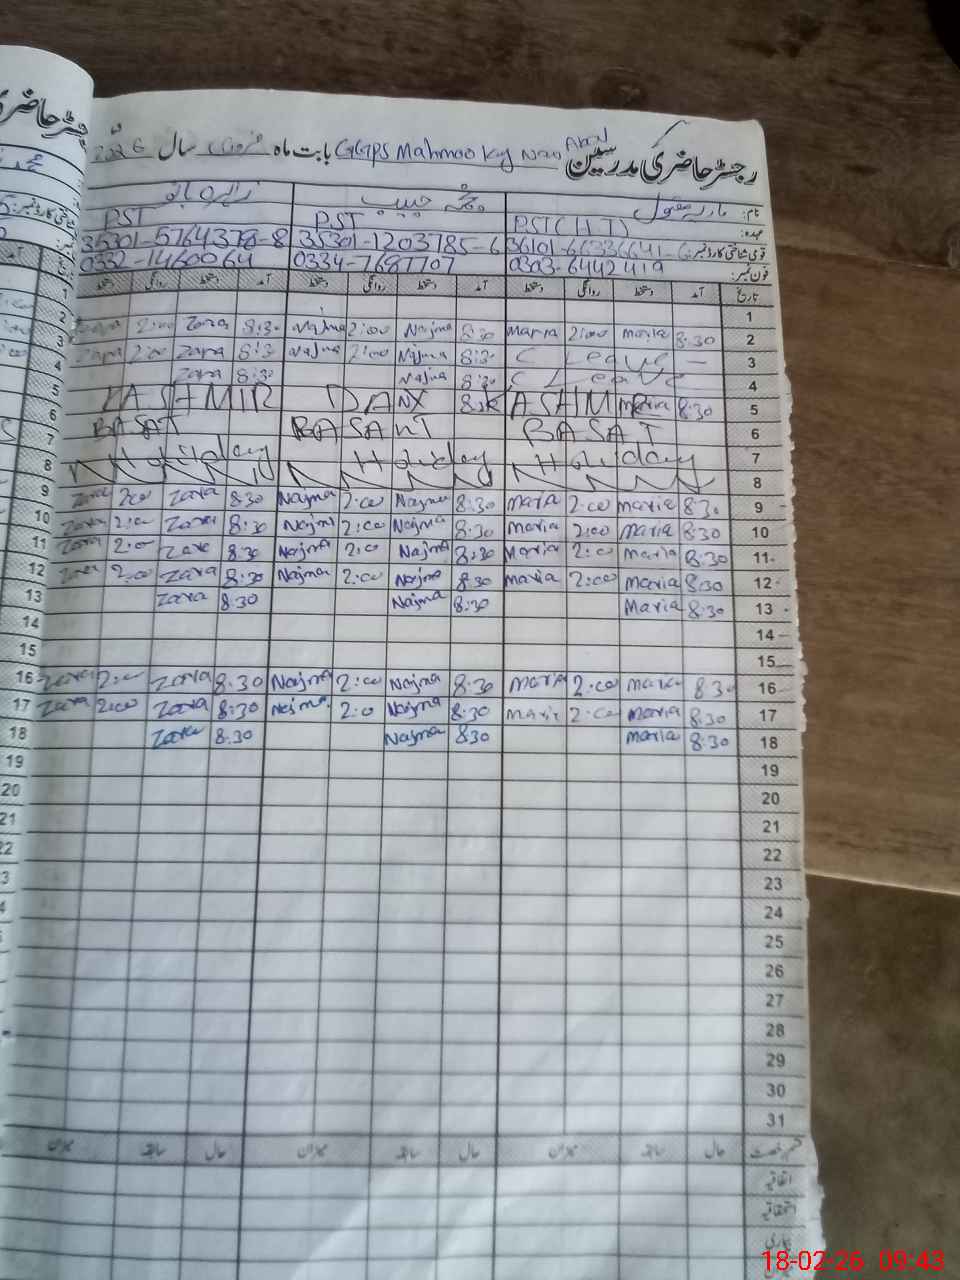 رجسٹر حاضری مدرسین GGPS Mahmoo Ky Nau Abad بابت ماہ فروری سال 2026
نام: ماریہ مقبول نجمہ حبیب زاہرہ بانو
عہدہ: PST(H.T) PST PST
قومی شناختی کارڈ نمبر: 35301-1203785-6 35301-5764378-8
فون نمبر: 0303-6442419 0334-7687707 0332-1460064
تاریخ آمد دستخط روانگی دستخط آمد دستخط روانگی دستخط آمد دستخط روانگی دستخط
1
2:00 Zara 8:30 Najma 2:00 Najma 8:30 Maria 2:00 Maria 8:30 2
Zara 2:00 Zara 8:30 Najma 2:00 Najma 8:30 C Leave 3
Zara 8:30 Najma 8:30 C Leave 4
KASHMIR DAY KASHMIR Maria 8:30 5
BASAT BASANT BASAT 6
Holiday Holiday Holiday 7
8
Zara 2:00 Zara 8:30 Najma 2:00 Najma 8:30 Maria 2:00 Maria 8:30 9
Zara 2:00 Zara 8:30 Najma 2:00 Najma 8:30 Maria 2:00 Maria 8:30 10
Zara 2:00 Zara 8:30 Najma 2:00 Najma 8:30 Maria 2:00 Maria 8:30 11
Zara 2:00 Zara 8:30 Najma 2:00 Najma 8:30 Maria 2:00 Maria 8:30 12
Zara 8:30 Najma 8:30 Maria 8:30 13
14
15
Zara 2:00 Zara 8:30 Najma 2:00 Najma 8:30 Maria 2:00 Maria 8:30 16
Zara 2:00 Zara 8:30 Najma 2:0 Najma 8:30 Maria 2:00 Maria 8:30 17
Zara 8:30 Najma 830 Maria 8:30 18
19
20
21
22
23
24
25
26
27
28
29
30
31
قسم رخصت حال سابقہ میزان حال سابقہ میزان حال سابقہ میزان
اتفاقیہ
استحقاقیہ
بیماری
18-02-26 09:43